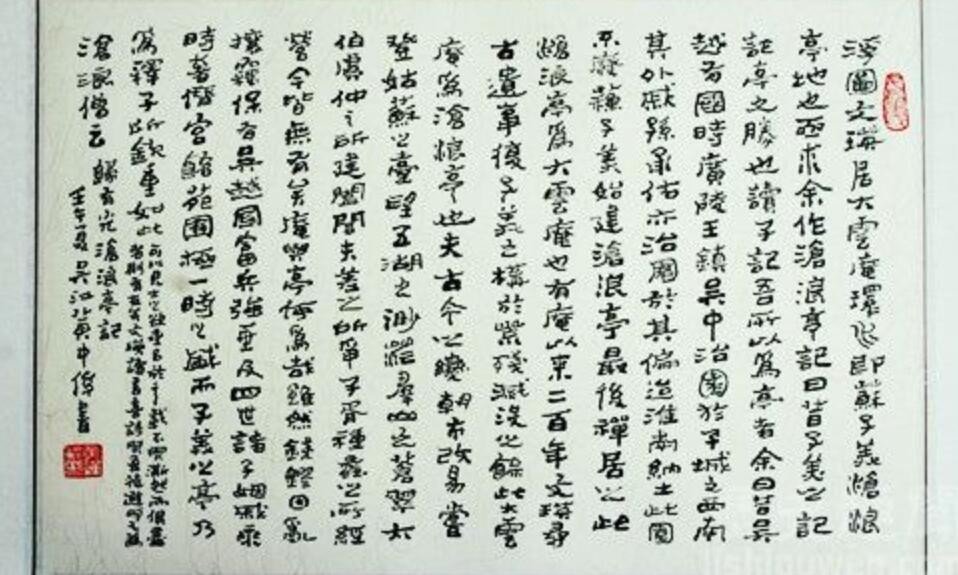 浮圖文瑛居大雲庵環水即蘇子美滄浪
亭地也亟求余作滄浪亭記曰昔子美之記
記亭之勝也請子記吾所以為亭者余曰昔吳
越有國時廣陵王鎮吳中治園於子城之西南
其外戚孫承佑亦治園於其偏迨淮南納土此園
不廢蘇子美始建滄浪亭最後禪居之此
滄浪亭為大雲庵也有庵以來二百年文瑛尋
古遺事復子美之構於荒殘滅沒之餘此大雲
庵為滄浪亭也夫古今之變朝市改易嘗
登姑蘇之臺望五湖之渺茫羣山之蒼翠太
伯虞仲之所建闔閭夫差之所爭子胥種蠡之所經
營今皆無有矣庵與亭何為哉雖然錢鏐因亂
攘竊保有吳越國富兵強垂及四世諸子姻戚乘
時奢僭宮館苑囿極一時之盛而子美之亭乃
為釋子所欽重如此可以見士之欲垂名於千載不與澌然而俱盡
者則有在矣文瑛讀書喜詩與吾徒游呼之為
滄浪僧云 歸有光滄浪亭記
壬午夏吳江黃中偉書